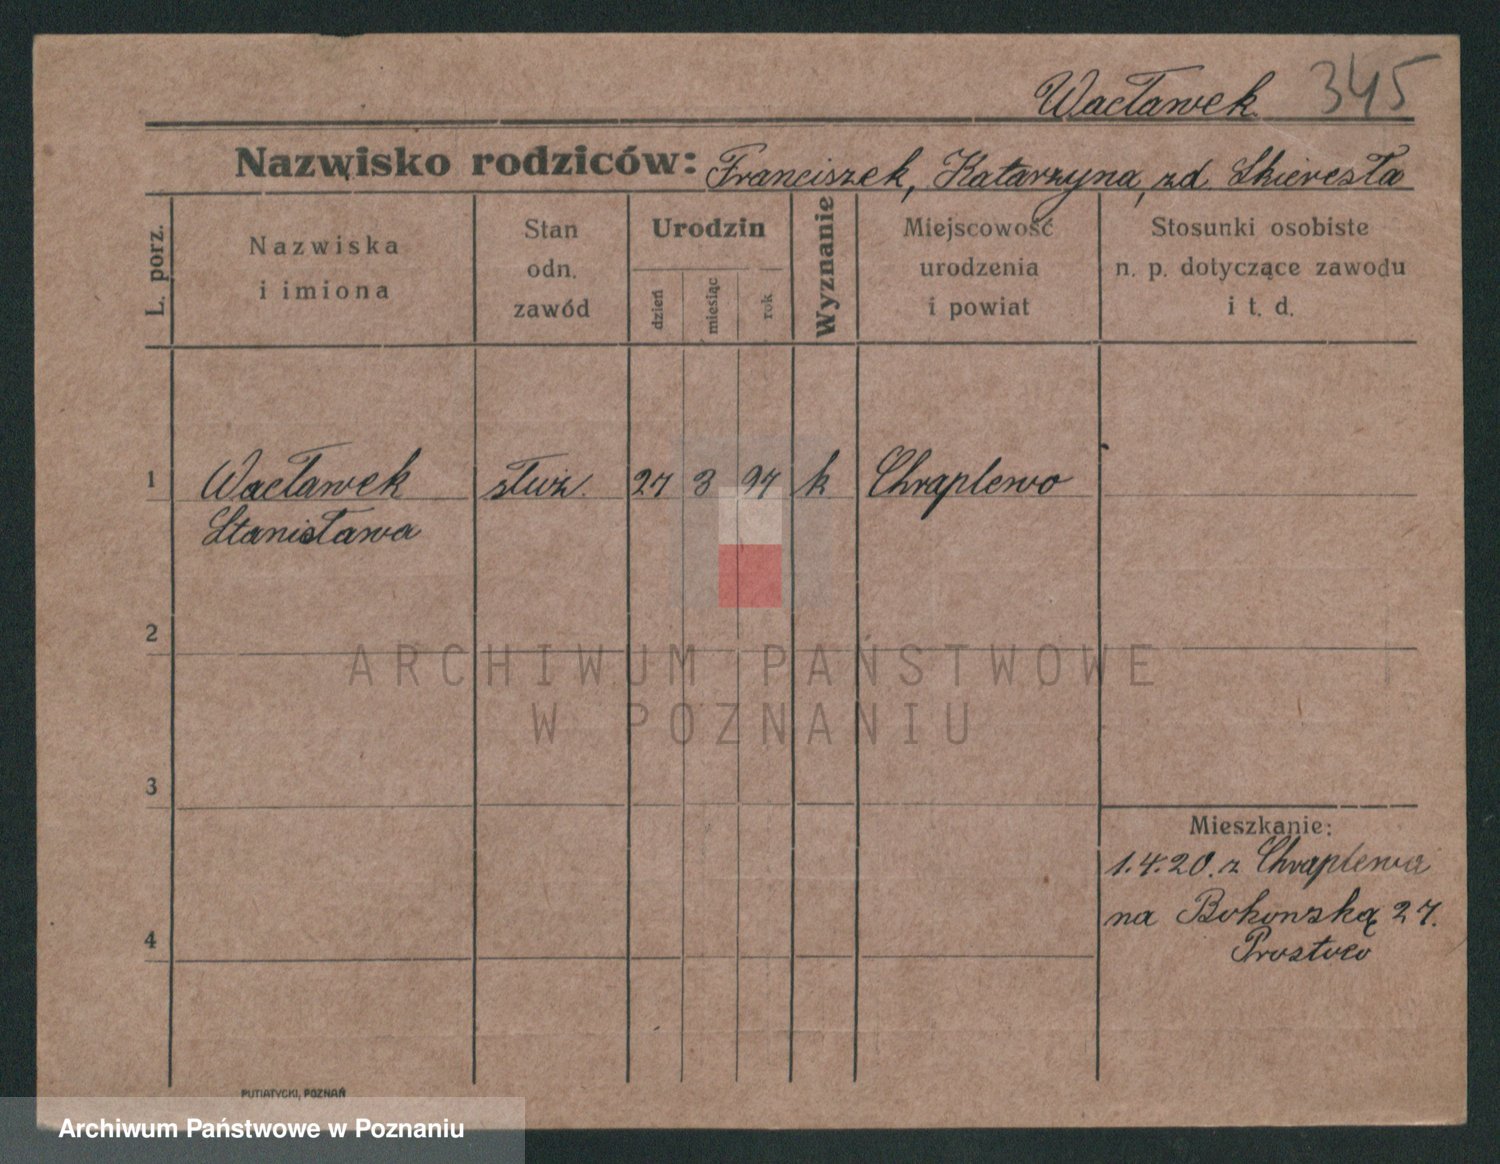 Wacławek 345
Nazwisko rodziców: Franciszek, Katarzyna, zd. Skieresła
L. porz.
Nazwiska
i imiona
Stan
odn.
zawód
Urodzin
dzień
miesiąc
rok
Wyznanie
Miejscowość
urodzenia
i powiat
Stosunki osobiste
n. p. dotyczące zawodu
i t. d.
1 Wacławek służ. 27 3 97 k Chraplewo
Stanisława
2
ARCHIWUM PAŃSTWOWE
W POZNANIU
3
Mieszkanie:
1.4.20. z Chraplewa
na Bukowską 27.
4
PUTIATYCKI, POZNAŃ
Archiwum Państwowe w Poznaniu